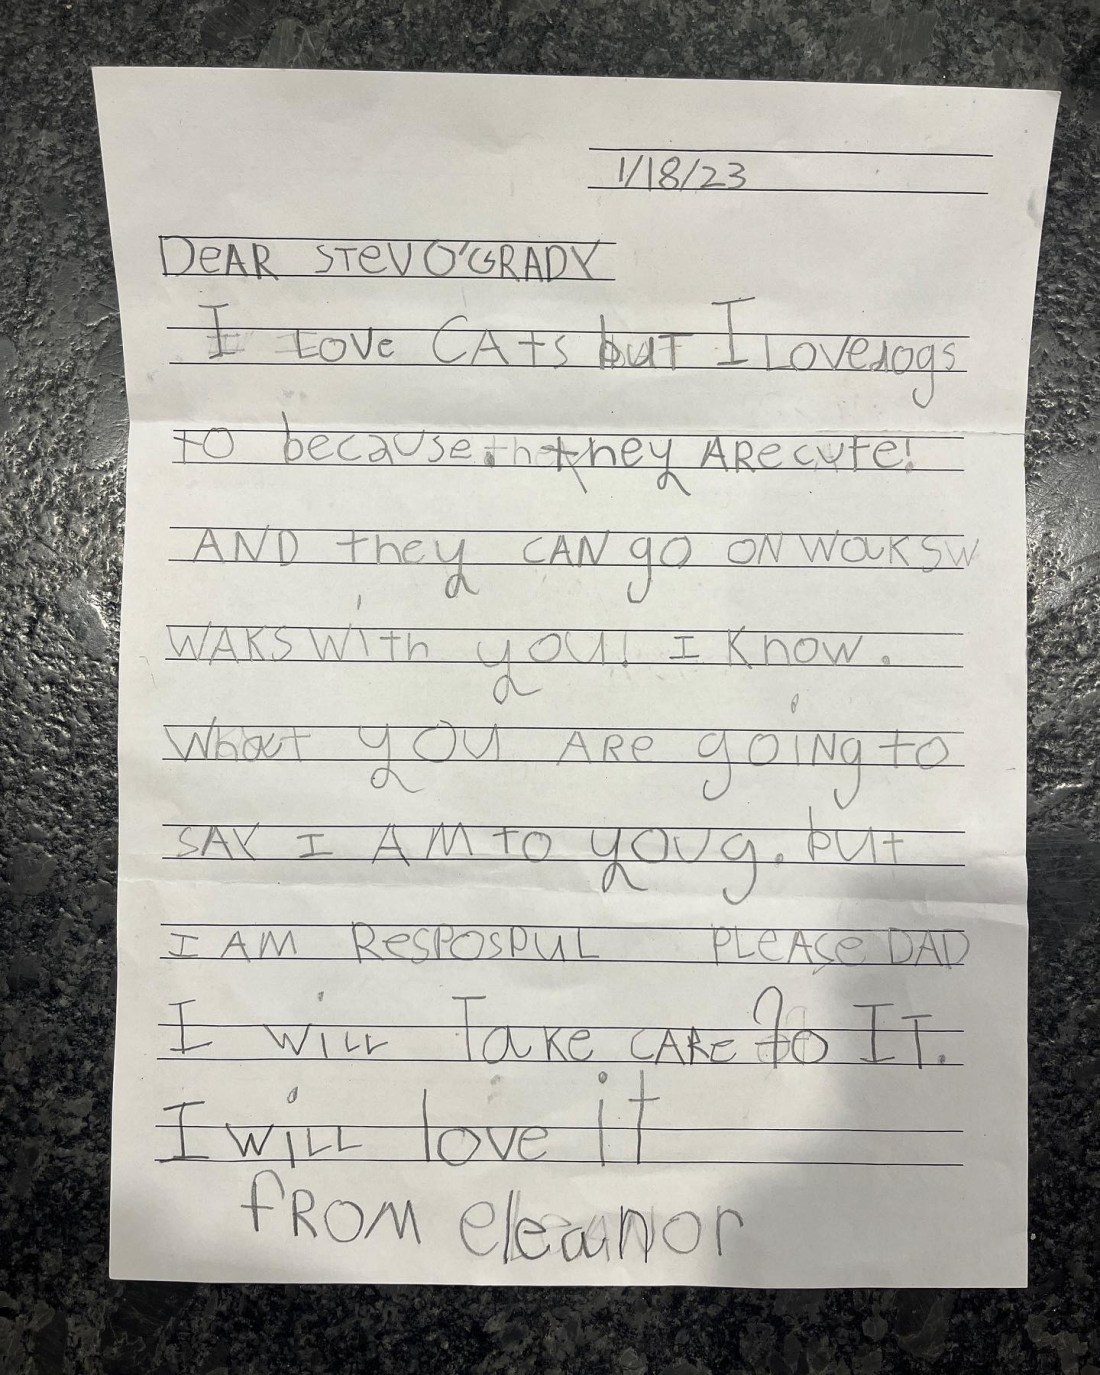 1/18/23
DeAR STeV O'GRADY
I LOVe CAtS buT I LOVe dogs
tO because they ARe cute!
AND they CAN go ON WOLKS W
WAKS With you! I Know.
What yOU ARe goiNg to
SAY I AM TO youg. but
I AM ResPOSPUL PLeASe DAD
I WiLL TaKe CARe fo IT.
I WiLL love it
fROM eleanor